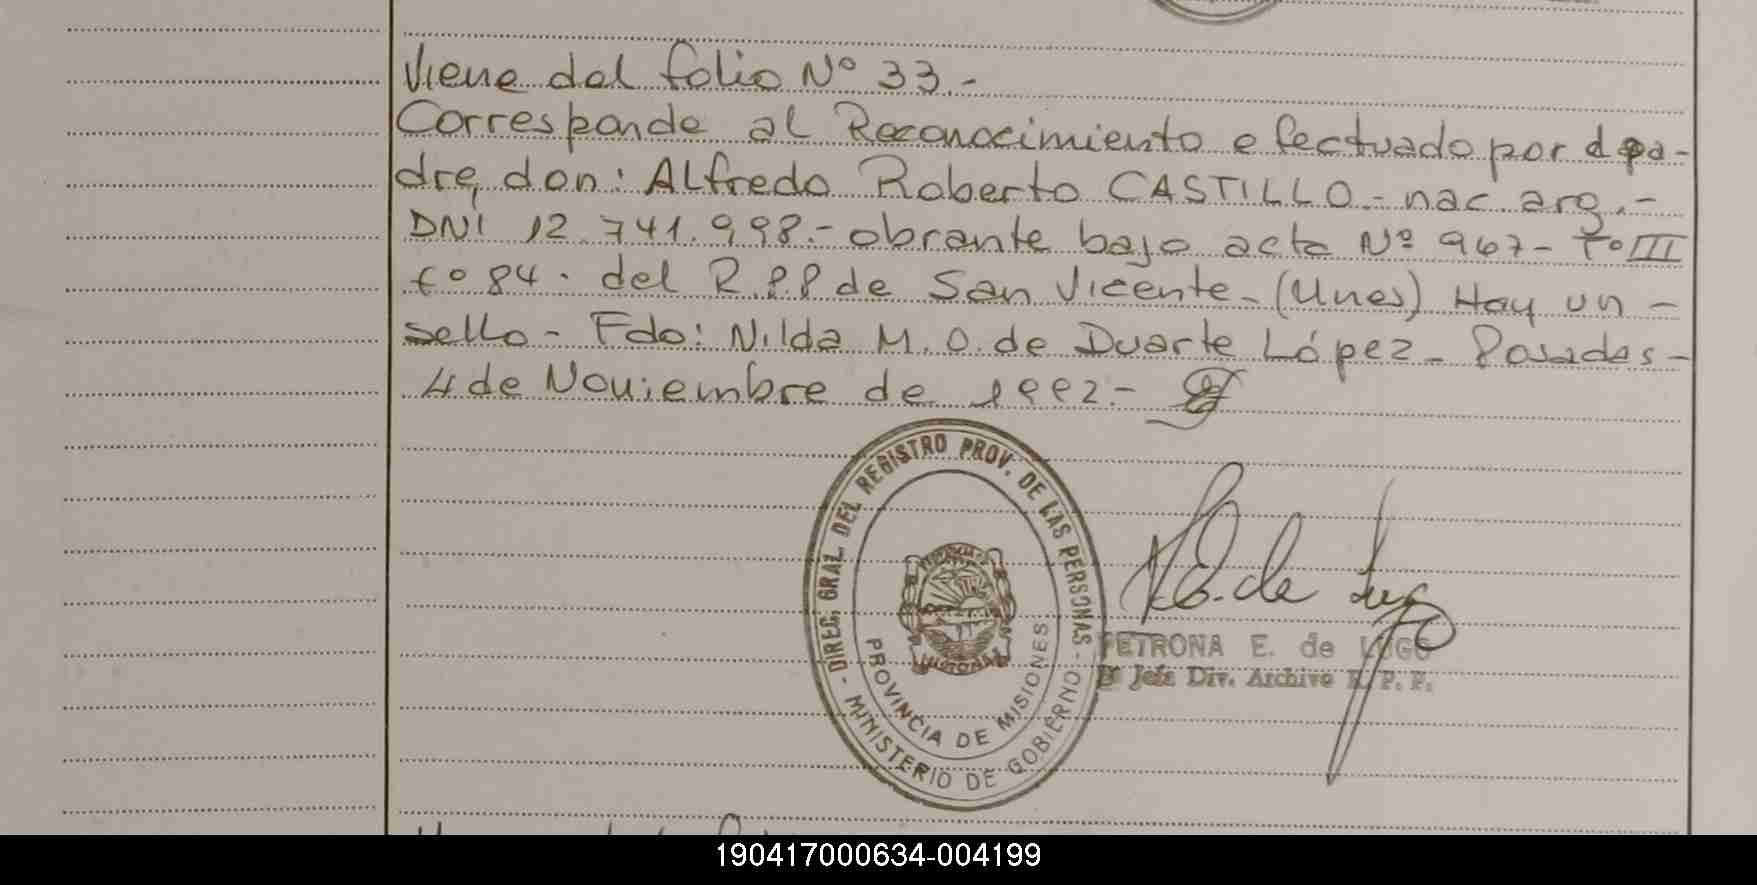 Viene del folio Nº 33.-
Corresponde al Reconocimiento efectuado por el pa-
dre, don: Alfredo Roberto CASTILLO.- nac. arg.-
DNI 12.741.998.- obrante bajo acta Nº 967- Tº III
fº 84. del R.P.P de San Vicente.- (Mnes) Hay un -
sello - Fdo: Nilda M. O. de Duarte López - Posadas -
4 de Noviembre de 1992.-
DIREC. GRAL. DEL REGISTRO PROV. DE LAS PERSONAS.-
- MINISTERIO DE GOBIERNO
PROVINCIA DE MISIONES
PETRONA E. de LUGO
Jefa Div. Archivo R. P. P.
190417000634-004199